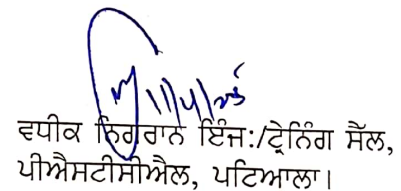 ਵਧੀਕ ਨਿਗਰਾਨ ਇੰਜ:/ਟ੍ਰੇਨਿੰਗ ਸੈੱਲ,
ਪੀਐਸਟੀਸੀਐਲ, ਪਟਿਆਲਾ।